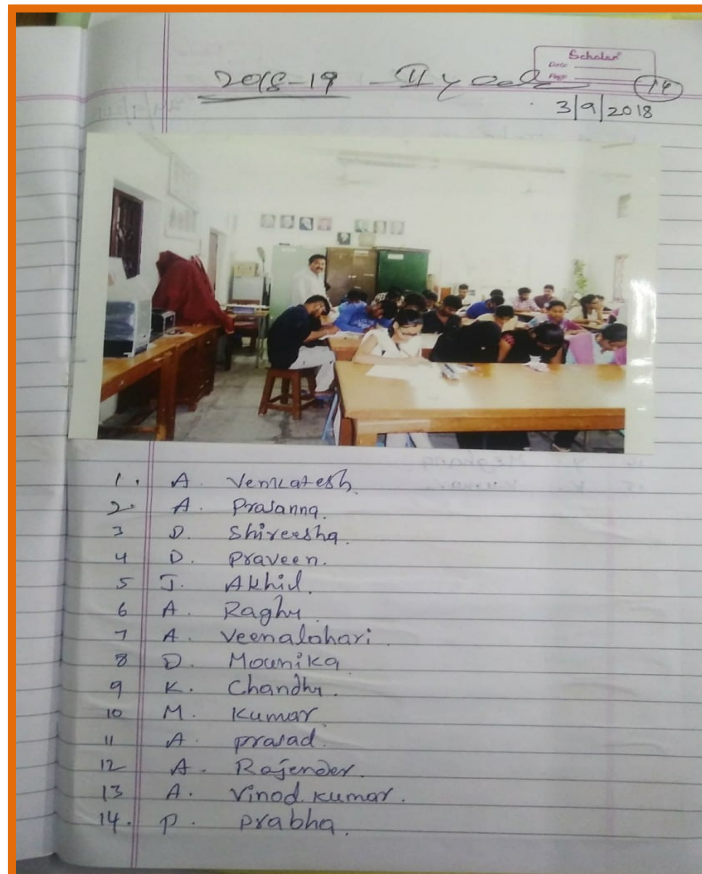 Scholar
Date
Page
2018-19 - II year
3/9/2018
1. A. Venkatesh
2. A. Prasanna.
3 D. Shireesha.
4 D. Praveen.
5 J. Akhil.
6 A. Raghu
7 A. Veenalahari
8 D. Mounika
9 K. Chandhu.
10 M. Kumar
11 A. prasad.
12 A. Rajender.
13 A. Vinod kumar.
14. P. Prabha.